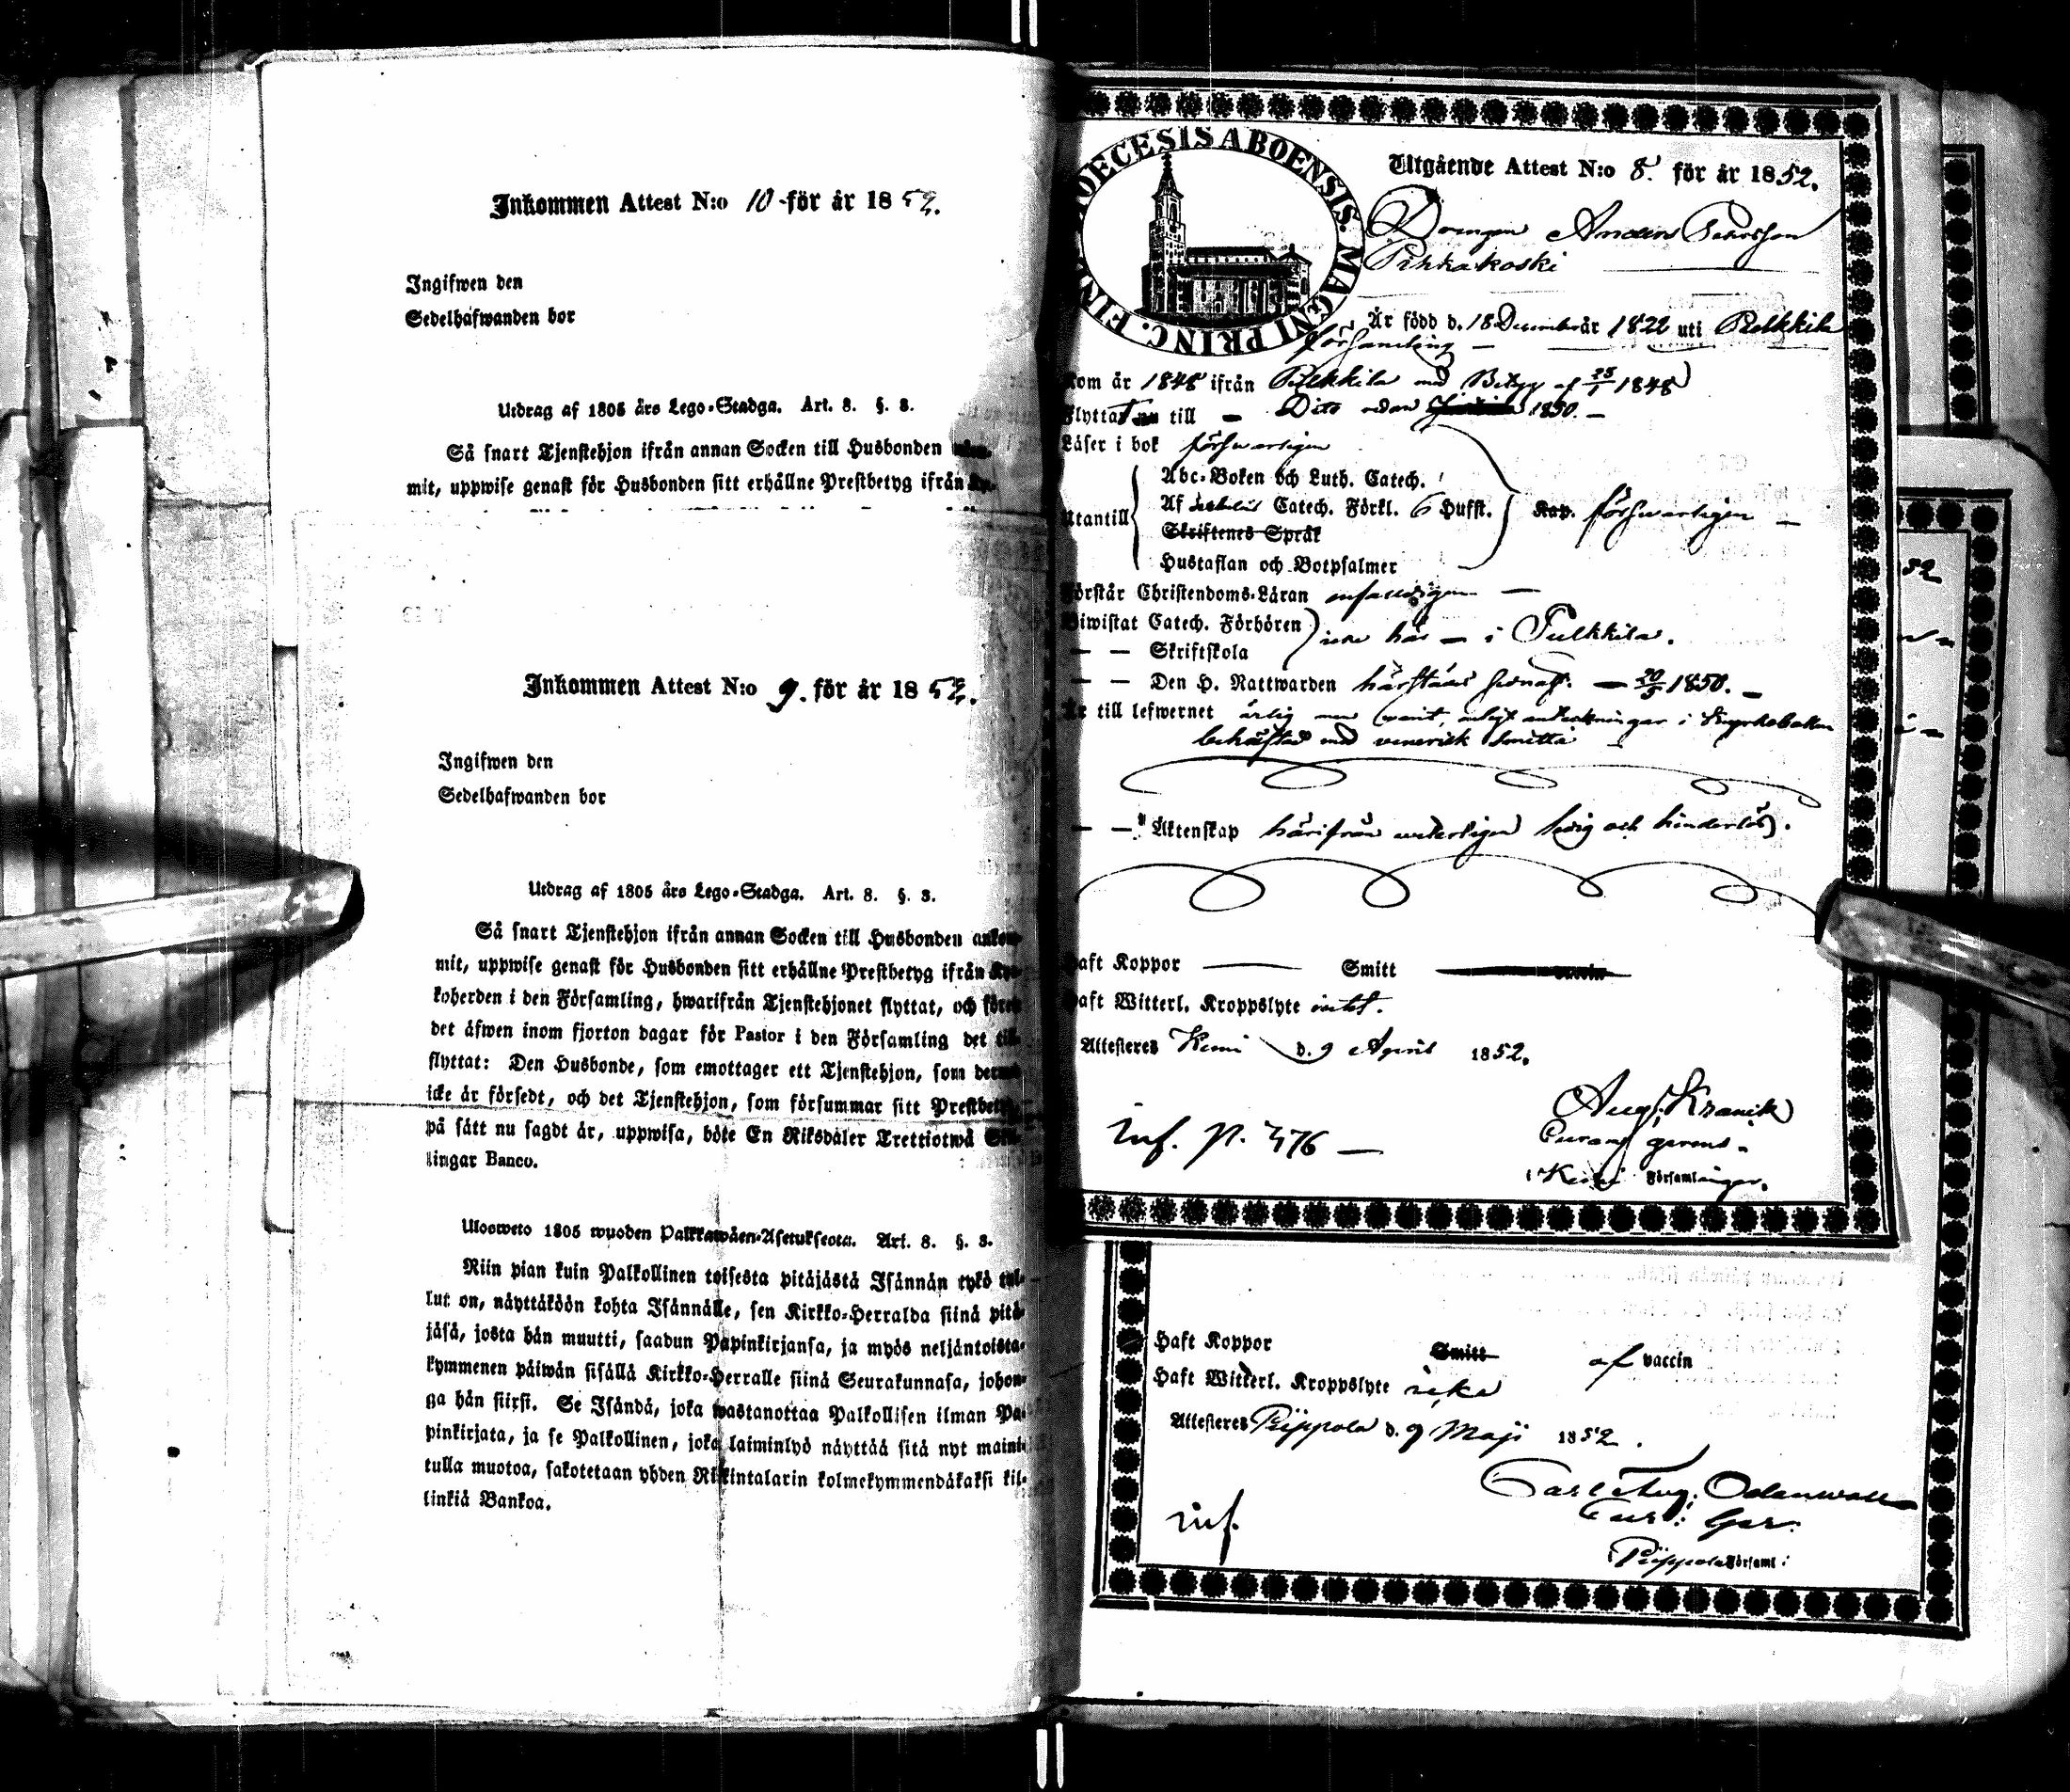 Inkommen Attest N:o 10 för år 1852.
Ingifwen den
Sedelhafwanden bor
Utdrag af 1805 års Lego-Stadga. Art. 8. §. 3.
Så snart Tjenstehjon ifrån annan Socken till Husbonden
mit, uppwise genast för Husbonden sitt erhållne Prestbetyg ifrån
Inkommen Attest N:o 9. för år 1852.
Ingifwen den
Sedelhafwanden bor
Utdrag af 1805 års Lego-Stadga. Art. 8. §. 3.
Så snart Tjenstehjon ifrån annan Socken till Husbonden ankom-
mit, uppwise genast för Husbonden sitt erhållne Prestbetyg ifrån Kyr-
koherden i den Församling, hwarifrån Tjenstehjonet flyttat, och förete
det äfwen inom fjorton dagar för Pastor i den Församling det till-
flyttat: Den Husbonde, som emottager ett Tjenstehjon, som dermed
icke är försedt, och det Tjenstehjon, som försummar sitt Prestbetyg,
på sätt nu sagdt är, uppwisa, böte En Riksdaler Trettiotwå Skil-
lingar Banco.
Ulosweto 1805 wuoden Palkkawäen-Asetuksesta. Art. 8. §. 3.
Niin pian kuin Palkollinen toisesta pitäjästä Isännän tykö tul-
lut on, näyttäköön kohta Isännälle, sen Kirkko-Herralda siinä pitä-
jäsä, josta hän muutti, saadun Papinkirjansa, ja myös neljäntoista-
kymmenen päiwän sisällä Kirkko-Herralle siinä Seurakunnasa, johon-
ga hän siirsi. Se Isändä, joka wastanottaa Palkollisen ilman Pa-
pinkirjata, ja se Palkollinen, joka laiminlyö näyttää sitä nyt maini-
tulla muotoa, sakotetaan yhden Riikintalarin kolmekymmendäkaksi kil-
linkiä Bankoa.
DIOECESIS ABOENSIS. MAGNI PRINC. FIN
Utgående Attest N:o 8. för år 1852.
Drengen Anders Pehrsson
Pihkakoski
Är född d. 18 December år 1822 uti Pulkkila
församling
Kom år 1848 ifrån Pulkkila med Betyg af 1848
Flyttat nu till Dito sedan 1850.
Läser i bok försvarligen
Utantill
Abc-Boken och Luth. Catech.
Af Catech. Förkl. 6 Hufst.
Skriftenes Språk
Hustaflan och Botpsalmer
Kap. försvarligen
Förstår Christendoms-Läran enfaldigen
Biwistat Catech. Förhören
— — Skriftskola
icke här — i Pulkkila.
— — Den H. Nattwarden härstädes senast. 20/5 1850.
Är till lefwernet ärlig men warit, enligt anteckningar i Kyrkoboken
behäftad med venerisk smitta
— — Äktenskap härifrån weterligen ledig och hinderlös.
Haft Koppor — Smitt
Haft Witterl. Kroppslyte intet.
Attesteres Kemi d. 9 April 1852.
Aug. Kranck
Curam gerens
i Kemi Församlingar.
inf. p. 376
Haft Koppor Smitt af vaccin
Haft Witterl. Kroppslyte icke
Attesteres Piippola d. 9 Maji 1852.
Carl Aug. Odenwall
Cur: Ger:
i Piippola Församl:
inf.
52